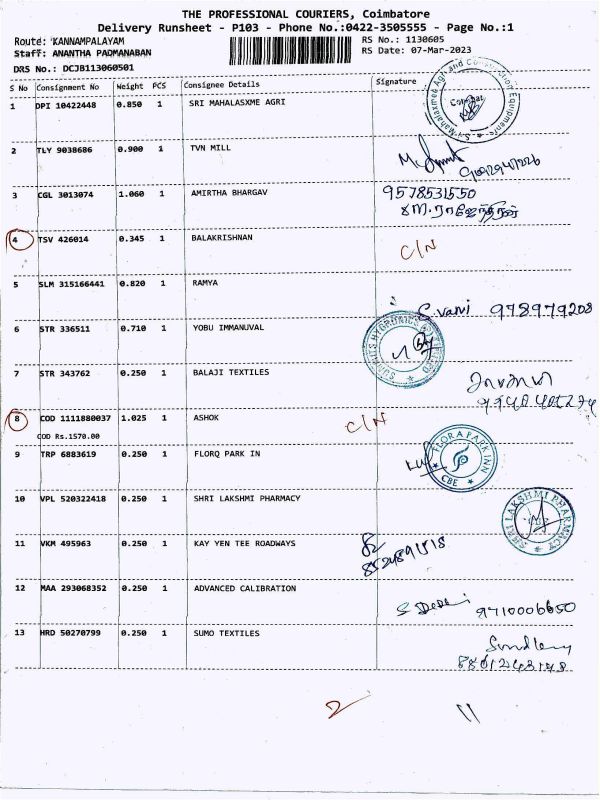 THE PROFESSIONAL COURIERS, Coimbatore
Delivery Runsheet - P103 - Phone No.:0422-3505555 - Page No.:1
Route: KANNAMPALAYAM
RS No.: 1130605
Staff: ANANTHA PADMANABAN
RS Date: 07-Mar-2023
DRS No.: DCJB113060501
S No Consignment No Weight PCS Consignee Details Signature
1 DPI 10422448 0.850 1 SRI MAHALASXME AGRI
2 TLY 9038686 0.900 1 TVN MILL
3 CGL 3013074 1.060 1 AMIRTHA BHARGAV 9578531550
M.ராஜேந்திரன்
4 TSV 426014 0.345 1 BALAKRISHNAN C/N
5 SLM 315166441 0.820 1 RAMYA
S.vani 978979208
6 STR 336511 0.710 1 YOBU IMMANUVAL
7 STR 343762 0.250 1 BALAJI TEXTILES
8 COD 1111880037 1.025 1 ASHOK C/N
COD Rs.1570.00
9 TRP 6883619 0.250 1 FLORQ PARK IN FLORA PARK INN CBE
10 VPL 520322418 0.250 1 SHRI LAKSHMI PHARMACY SHRI LAKSHMI PHARMACY
11 VKM 495963 0.250 1 KAY YEN TEE ROADWAYS
12 MAA 293068352 0.250 1 ADVANCED CALIBRATION
9710006650
13 HRD 50270799 0.250 1 SUMO TEXTILES
2 11